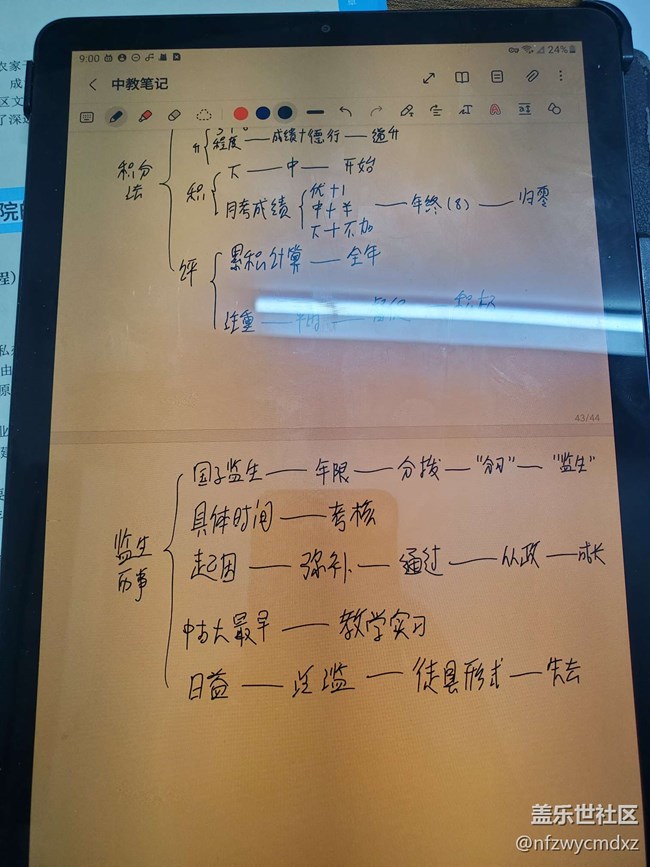 9:00
24%
中教笔记
升 程度—成绩+德行—递升
积分法
积 下—中—开始
月考成绩 优+1 中+半 下+不加 —年终(8)—归零
评 累积计算—全年
注重
43/44
监生历事
国子监生—年限—分拨—"分习"—"监生"
具体时间—考核
起因—弥补—通过—从政—成长
中古大最早—教学实习
日益—泛滥—徒具形式—失去
盖乐世社区
@nfzwycmdxz